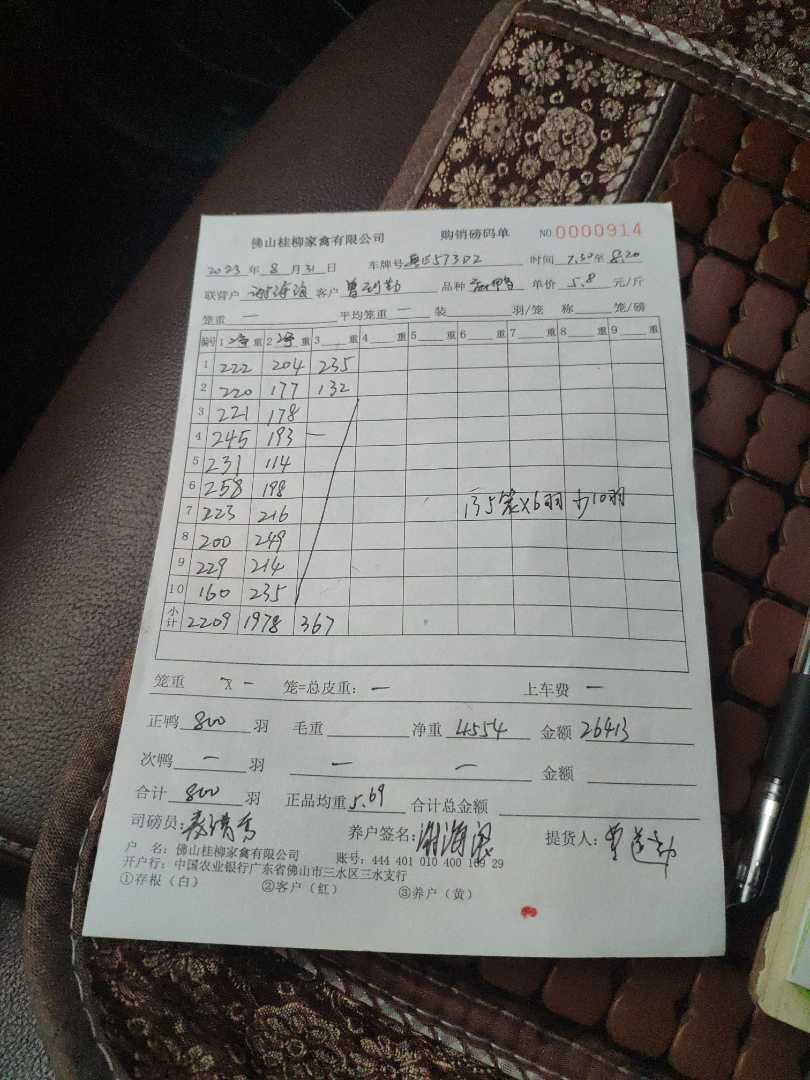 佛山桂柳家禽有限公司 购销磅码单 NO 0000914
2023 年 8 月 31 日 车牌号 573D2 时间 7.30 至 8.20
联营户 客户 曾 勤 品种 鸭 单价 5.8 元/斤
笼重 一 平均笼重 一 装 羽/笼 称 笼/磅
编号 1 重 2 重 3 重 4 重 5 重 6 重 7 重 8 重 9 重
1 222 204 235
2 220 177 132
3 221 178
4 245 193 一
5 231 114
6 258 198
7 223 216 135笼×6羽 少10羽
8 200 249
9 229 214
10 160 235
小计 2209 1978 367
笼重 × 一 笼=总皮重: 一 上车费 一
正鸭 800 羽 毛重 净重 4554 金额 26413
次鸭 一 羽 一 一 金额
合计 800 羽 正品均重 5.69 合计总金额
司磅员: 养户签名: 提货人:
户 名: 佛山桂柳家禽有限公司 账号: 444 401 010 400 169 29
开户行: 中国农业银行广东省佛山市三水区三水支行
①存根（白） ②客户（红） ③养户（黄）